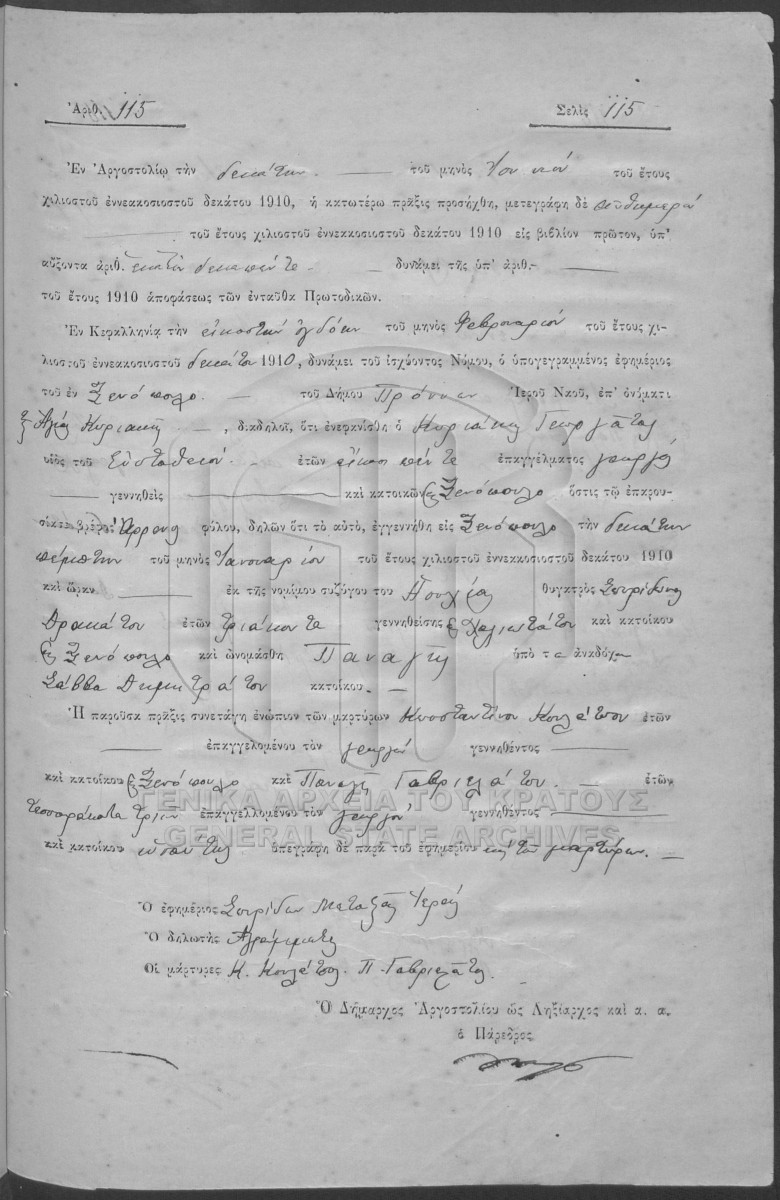 Ἀριθ. 115 Σελὶς 115
Ἐν Ἀργοστολίῳ τὴν δεκάτην τοῦ μηνὸς τοῦ ἔτους
χιλιοστοῦ ἐννεακοσιοστοῦ δεκάτου 1910, ἡ κατωτέρω πρᾶξις προσήχθη, μετεγράφη δὲ αὐθημερόν
τοῦ ἔτους χιλιοστοῦ ἐννεακοσιοστοῦ δεκάτου 1910 εἰς βιβλίον πρῶτον, ὑπ'
αὔξοντα ἀριθ. ἑκατὸν δεκαπέντε δυνάμει τῆς ὑπ' ἀριθ.
τοῦ ἔτους 1910 ἀποφάσεως τῶν ἐνταῦθα Πρωτοδικῶν.
Ἐν Κεφαλληνίᾳ τὴν εἰκοστὴν ὀγδόην τοῦ μηνὸς Φεβρουαρίου τοῦ ἔτους χι-
λιοστοῦ ἐννεακοσιοστοῦ δεκάτου 1910, δυνάμει τοῦ ἰσχύοντος Νόμου, ὁ ὑπογεγραμμένος ἐφημέριος
τοῦ ἐν Ξενόπουλο τοῦ Δήμου Πρόννων Ἱεροῦ Ναοῦ, ἐπ' ὀνόματι
Ἁγίας Κυριακῆς, διαδηλοῖ, ὅτι ἐνεφανίσθη ὁ Κυριάκης Γεωργάτος
υἱὸς τοῦ Εὐσταθίου ἐτῶν εἴκοσι πέντε ἐπαγγέλματος γεωργὸς
γεννηθεὶς καὶ κατοικῶν Ξενόπουλο ὅστις τῷ ἐπαρου-
σίασεν βρέφος ἄρρενος φύλου, δηλῶν ὅτι τὸ αὐτὸ, ἐγεννήθη εἰς Ξενόπουλο τὴν δεκάτην
πέμπτην τοῦ μηνὸς Ἰανουαρίου τοῦ ἔτους χιλιοστοῦ ἐννεακοσιοστοῦ δεκάτου 1910
καὶ ὥραν ἐκ τῆς νομίμου συζύγου του θυγατρὸς Σπυρίδωνος
Δρακάτου ἐτῶν τριάκοντα γεννηθείσης Χαλιωτάτου καὶ κατοίκου
Ξενόπουλο καὶ ὠνομάσθη Παναγῆς ὑπὸ τ ἀναδόχου
Σάββα Δημητράτου κατοίκου.
Ἡ παροῦσα πρᾶξις συνετάγη ἐνώπιον τῶν μαρτύρων Κωσταντίνου Κουλάτου ἐτῶν
ἐπαγγελομένου τὸν γεωργὸν γεννηθέντος
καὶ κατοίκου Ξενόπουλο καὶ Παναγῆ Γαβριελάτου ἐτῶν
τεσσαράκοντα τριῶν ἐπαγγελλομένου τὸν γεωργὸν γεννηθέντος
καὶ κατοίκου ὑπεγράφη δὲ παρὰ τοῦ ἐφημερίου καὶ τῶν μαρτύρων.
Ὁ ἐφημέριος Σπυρίδων Μεταξᾶς Ἱερεύς
Ὁ δηλωτὴς Ἀγράμματος
Οἱ μάρτυρες Κ. Κουλάτος Π. Γαβριελάτος
Ὁ Δήμαρχος Ἀργοστολίου ὡς Ληξίαρχος καὶ α. α.
ὁ Πάρεδρος
ΓΕΝΙΚΑ ΑΡΧΕΙΑ ΤΟΥ ΚΡΑΤΟΥΣ
GENERAL STATE ARCHIVES